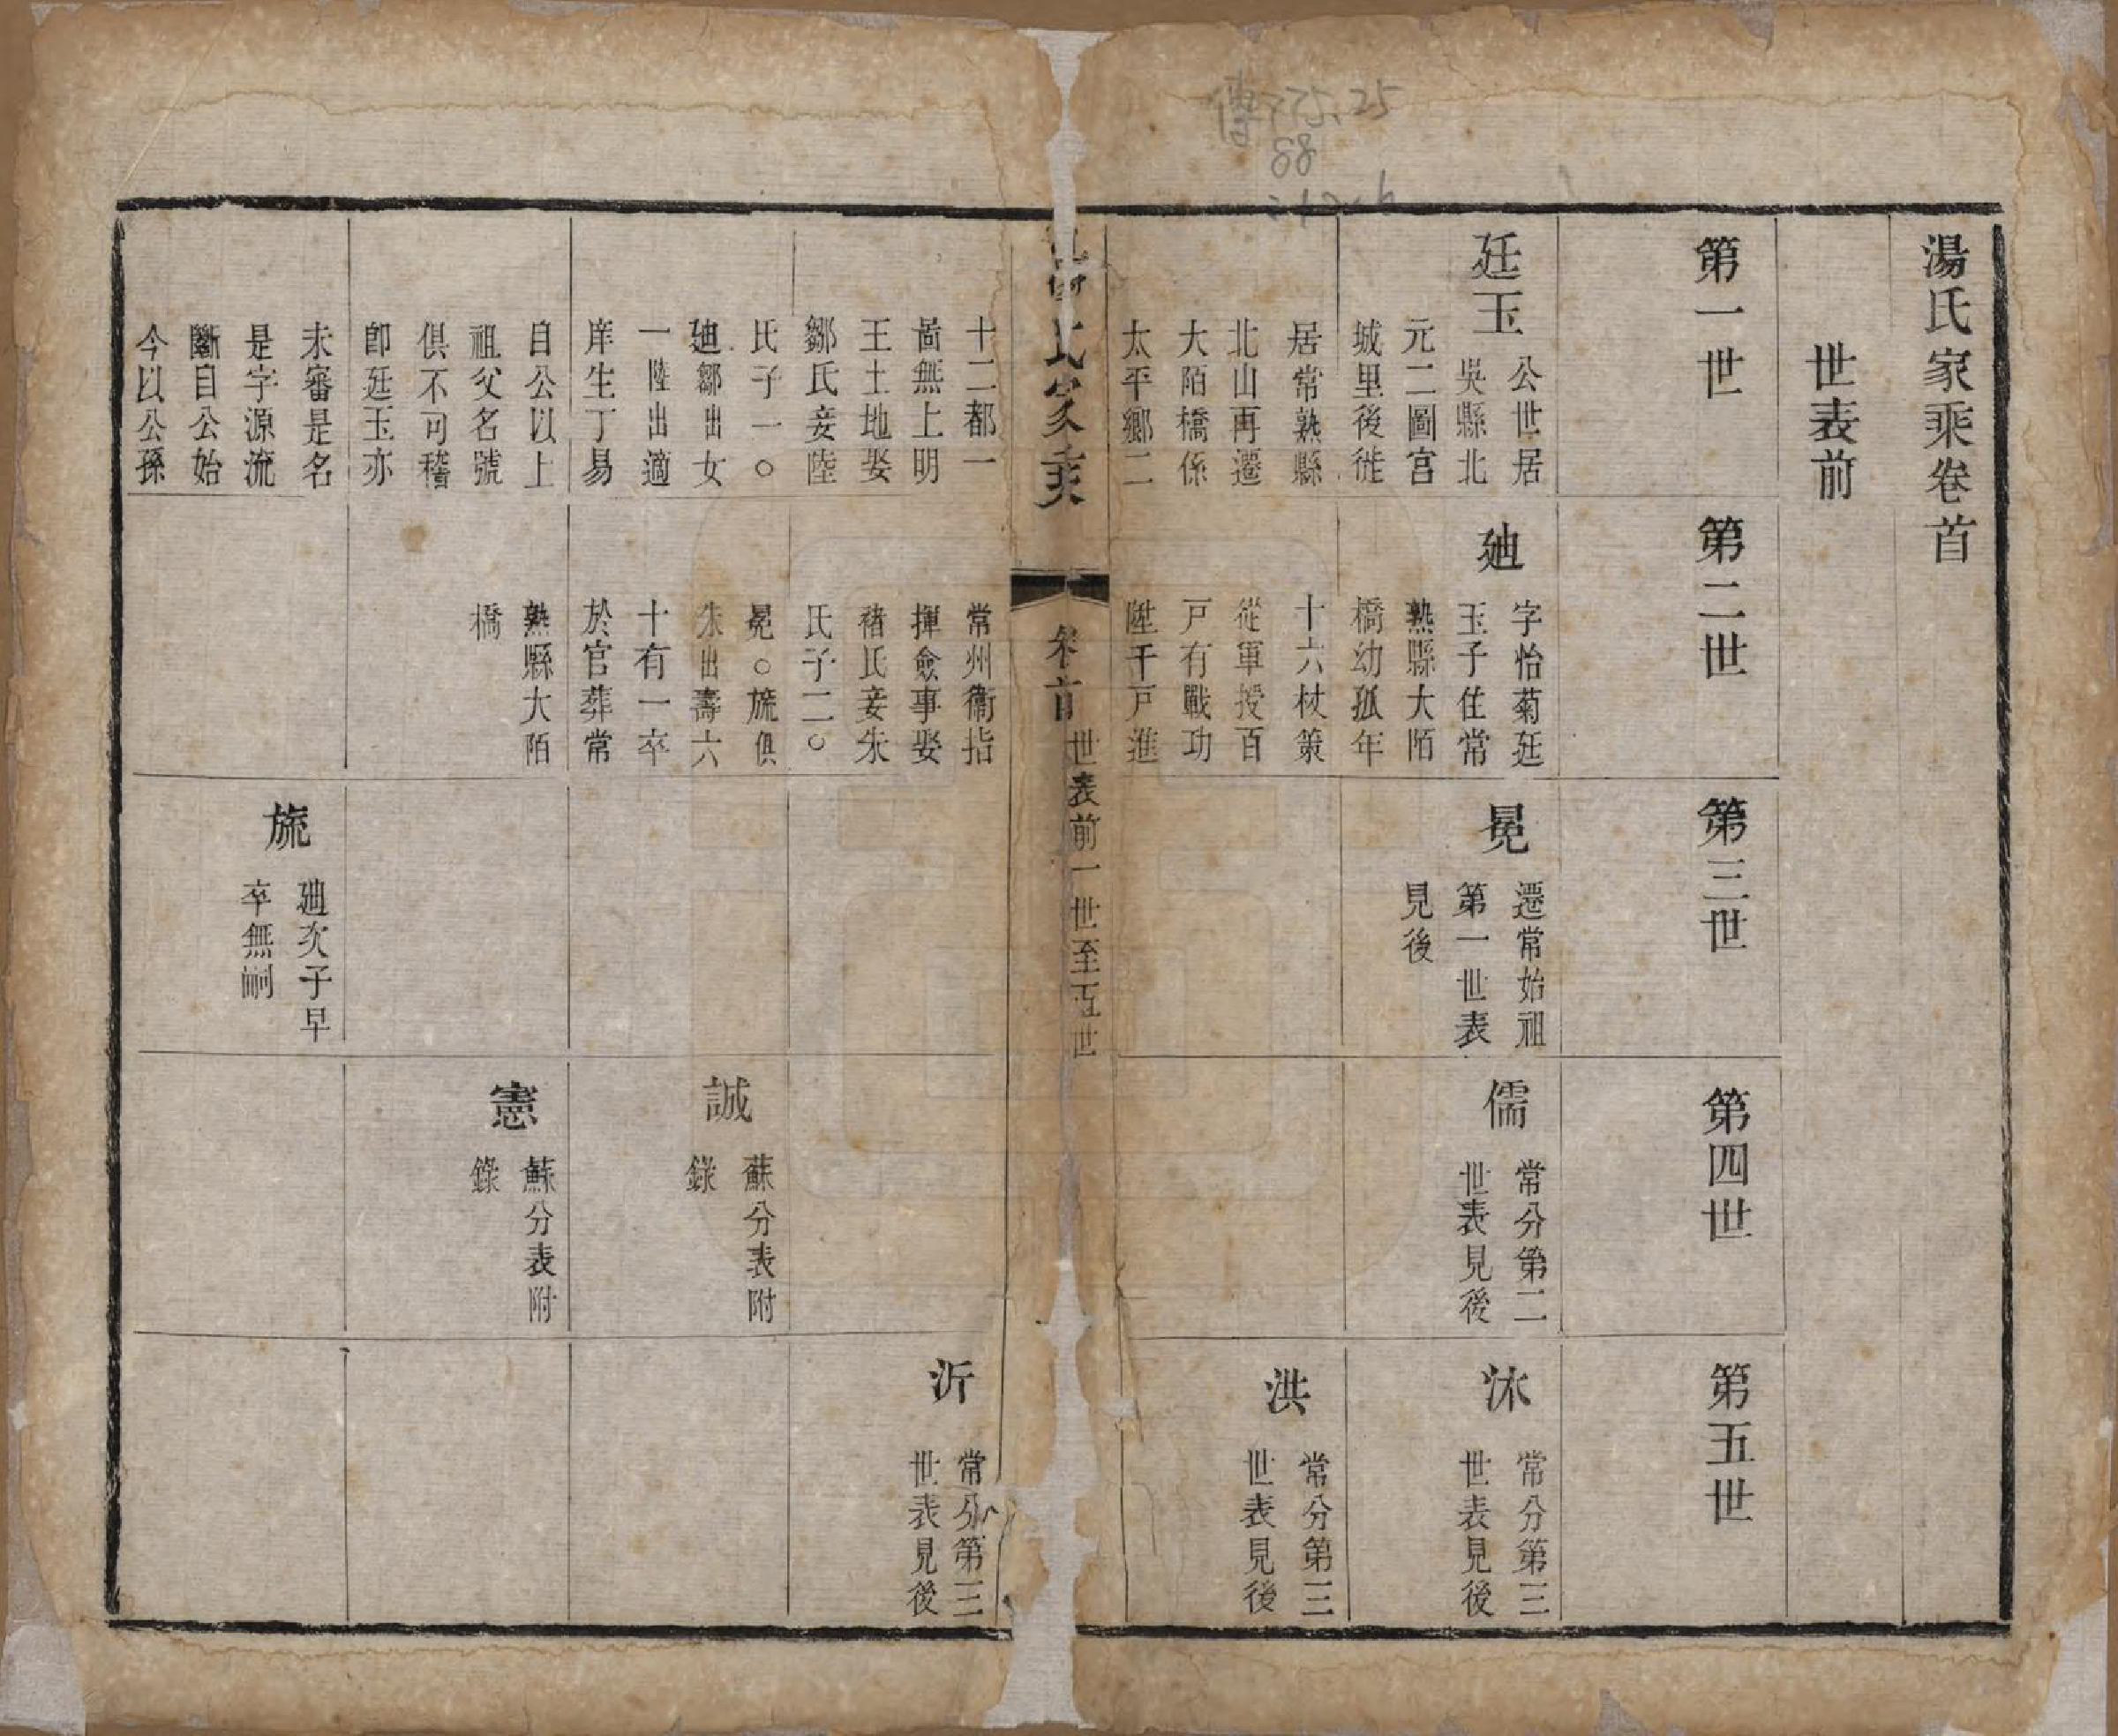 湯氏家乘卷首
世表前
第一世
第二世
第三世
第四世
第五世
廷玉
公世居
吳縣北
元二圖宫
城里後徙
居常熟縣
北山再遷
大陌橋係
太平鄉二
十二都一
啚無上明
王土地娶
鄒氏妾陸
氏子一○
廸鄒出女
一陸出適
庠生丁易
自公以上
祖父名號
俱不可稽
卽廷玉亦
未審是名
是字源流
斷自公始
今以公孫
廸
字怡菊廷
玉子住常
熟縣大陌
橋幼孤年
十六杖策
從軍授百
戸有戰功
陞千戸進
常州衞指
揮僉事娶
褚氏妾朱
氏子二○
冕○旒俱
朱出壽六
十有一卒
於官葬常
熟縣大陌
橋
冕
遷常始祖
第一世表
見後
旒
廸次子早
卒無嗣
儒
常分第二
世表見後
誠
蘇分表附
錄
憲
蘇分表附
錄
沐
常分第三
世表見後
洪
常分第三
世表見後
沂
常分第三
世表見後
氏家乘
卷首
世表前一世至五世
傳775.25
88